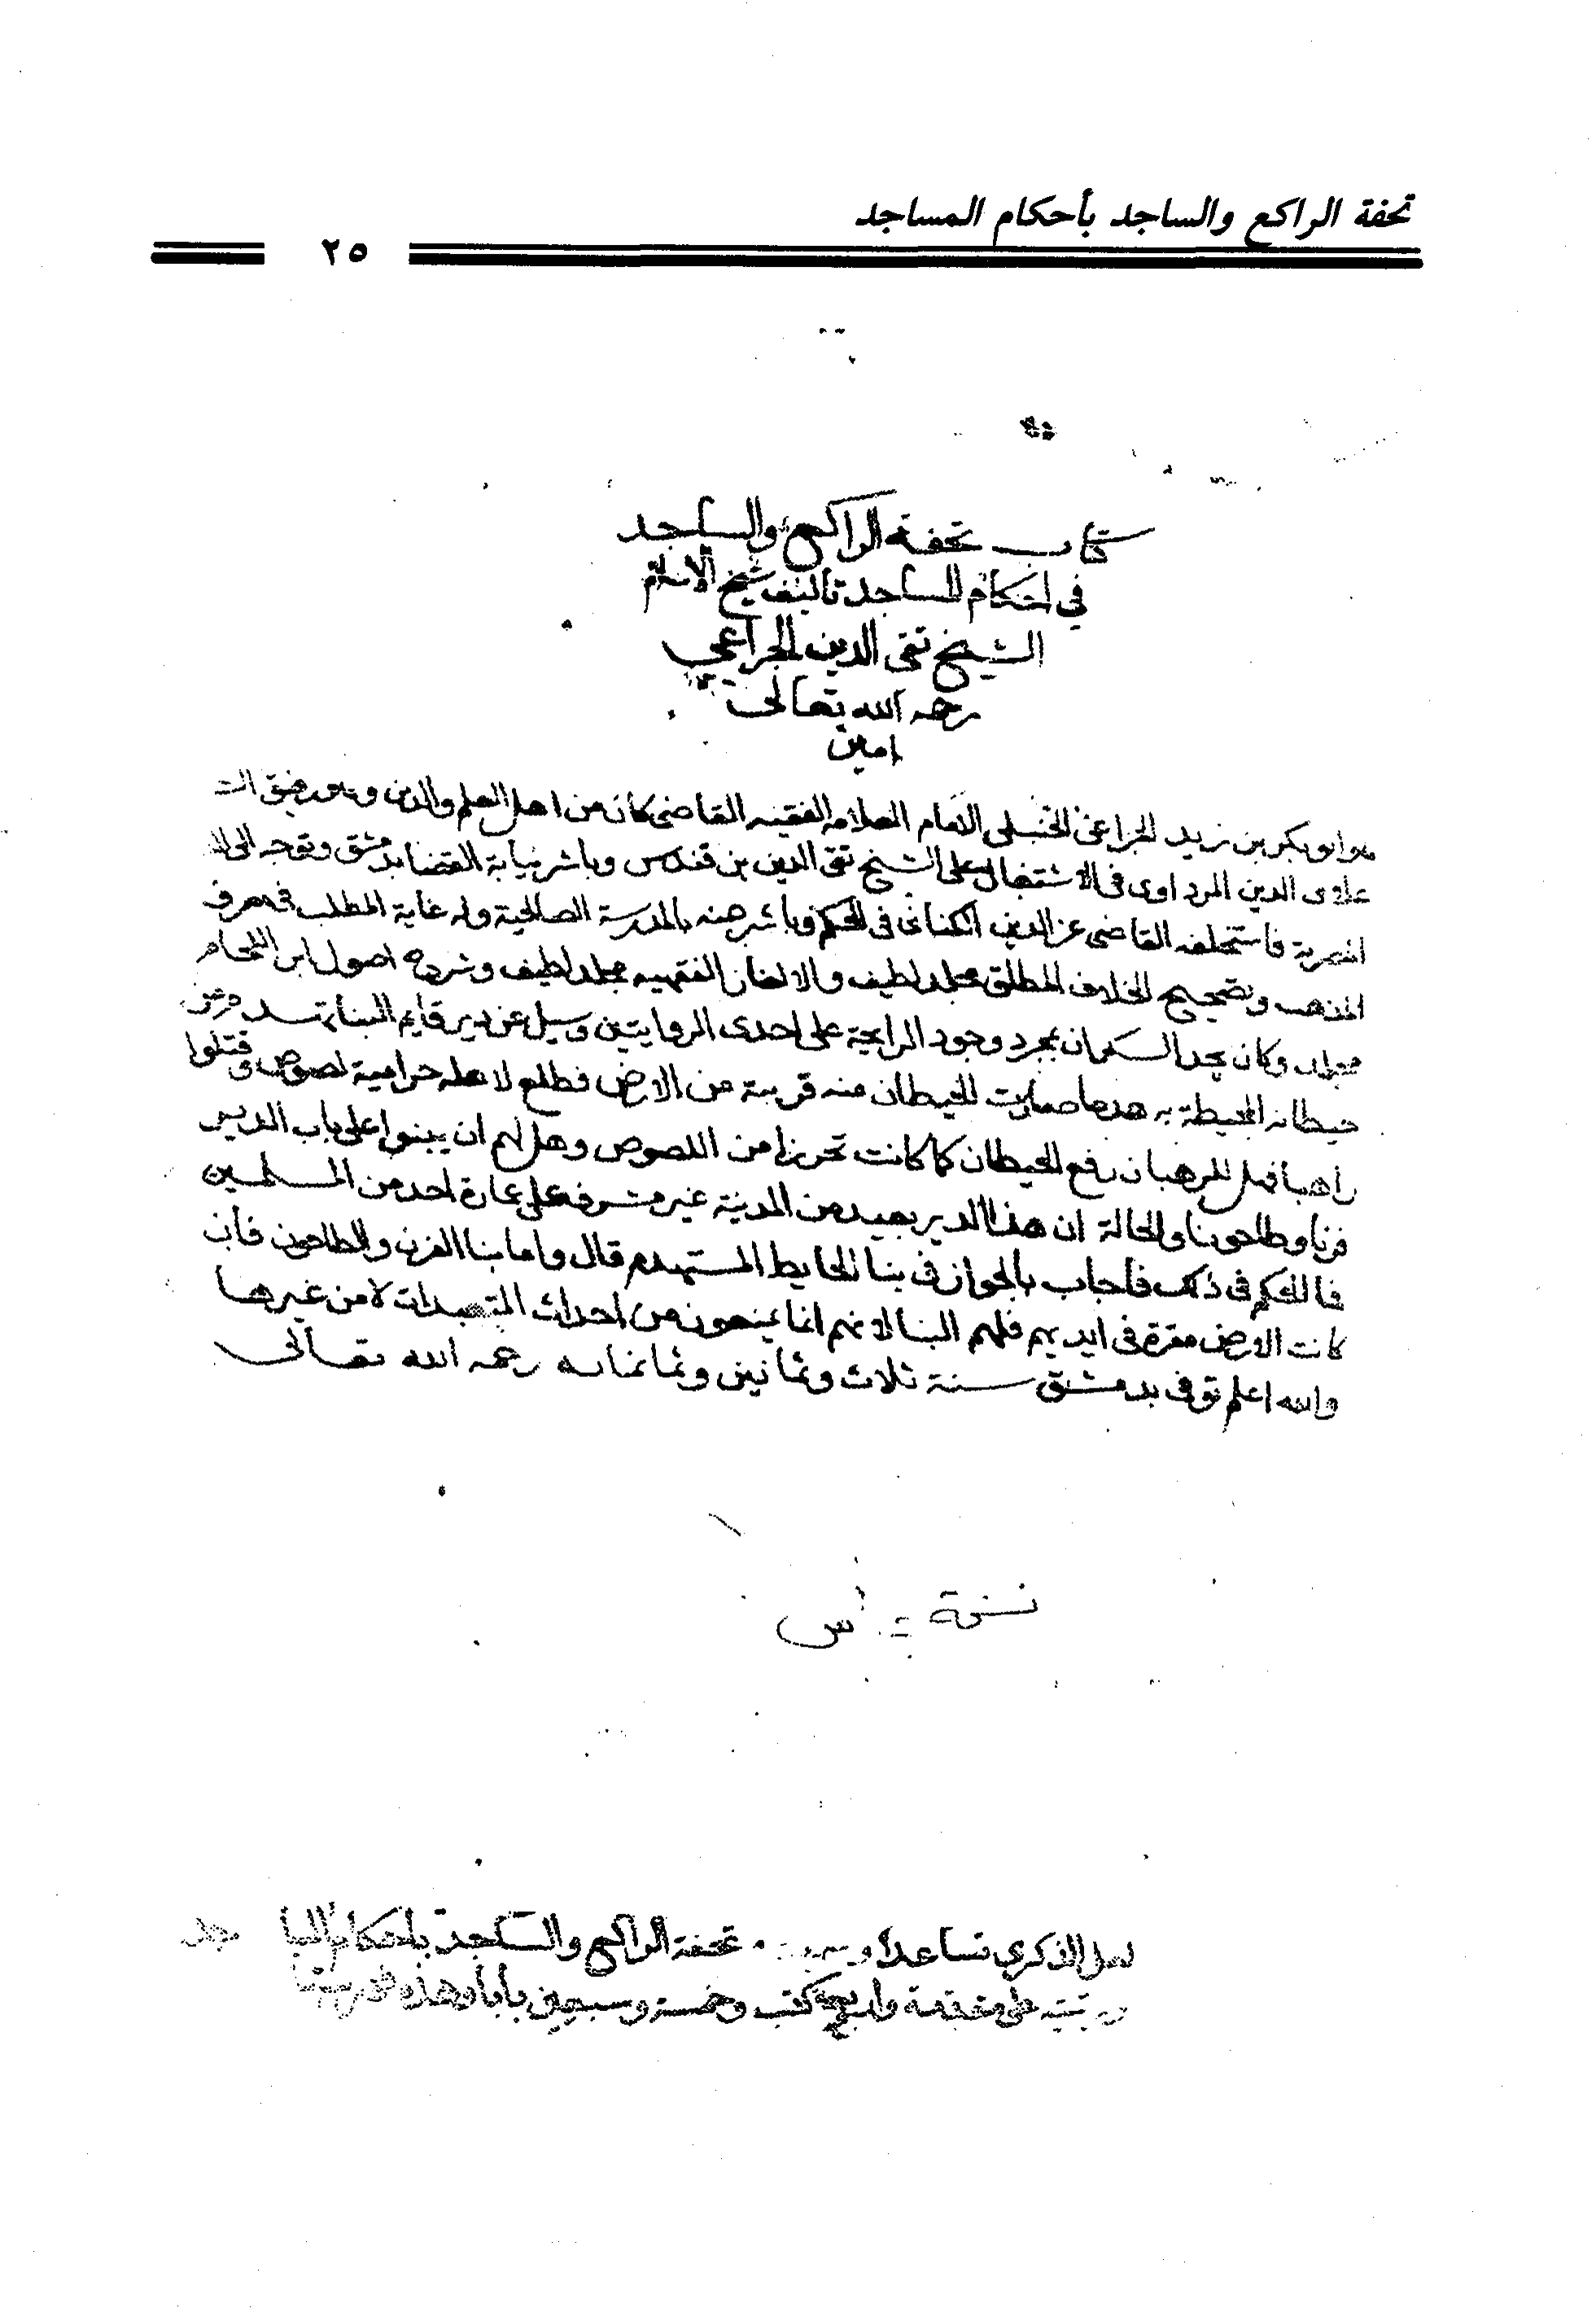 تحفة الراكع والساجد بأحكام المساجد
٢٥
كتاب تحفة الراكع والساجد
في احكام المساجد تأليف شيخ الاسلام
الشيخ تقى الدين الجراعي
رحمه الله تعالى
امين
هو ابو بكر بن زيد الجراعي الحنبلى الامام العلامه الفقيه القاضى كان من اهل العلم والدين وهو رفيق الشـ
علاى الدين المرداوى فى الاشتغال على الشيخ تقى الدين بن قندس وباشر نيابة القضا بدمشق وتوجه الى الد
المصرية فاستخلفه القاضى عز الدين الكنانى فى الحكم وباشر عنه بالمدرسة الصالحية وله غاية المطلب فى معرفة
المذهب وتصحيح الخلاف المطلق مجلد لطيف والالغاز الفقهيه مجلد لطيف وشرح اصول ابن اللحام
مجلد وكان يحد السكران بمجرد وجود الرايحة على احدى الروايتين وسيل عن دير قايم البنا تهدم من
حيطانه المحيطة به هدما صارت الحيطان منه قريبة من الارض فطلع لاهله حرامية لصوص وقتلوا
راهبا فهل للرهبان رفع الحيطان كما كانت تحرزا من اللصوص وهل لهم ان يبنوا على باب الدير
فرنا وطاحونا والحالة ان هذا الدير بعيد من المدينة غير مشرف على عمارة احد من المسلمين
فما الحكم فى ذلك فأجاب بالجواز فى بنا الحايط المستهدم قال واما بنا الفرن والطاحون فأن
كانت الارض مقرة فى ايديهم فلهم البنا لانهم انما يمنعون من احداث المتعبدات لا من غيرها
والله اعلم توفى بدمشق سنة ثلاث وثمانين وثمانمايه رحمه الله تعالى
نسخة = س
لعل الذكرى تساعد تحفة الراكع والساجد بأحكام المسا جد
رتبته على مقدمة واربعة كتب وخمسة وسبعين بابا وهذه